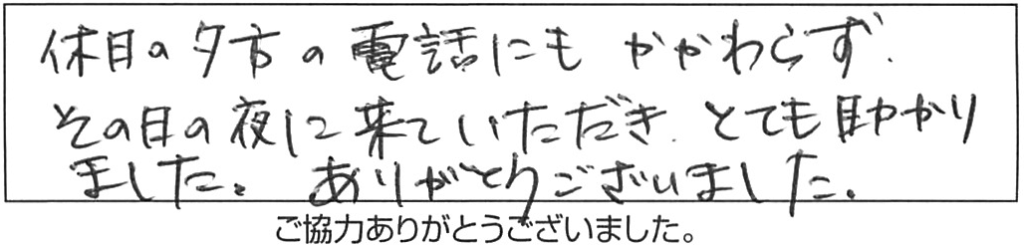 休日の夕方の電話にもかかわらず、
その日の夜に来ていただき、とても助かり
ました。ありがとうございました。
ご協力ありがとうございました。